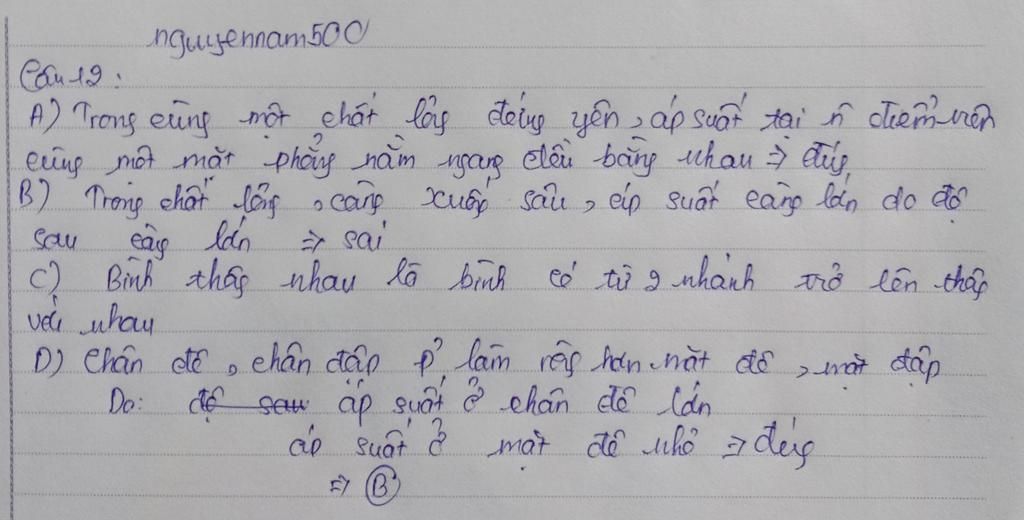 nguyennam500
Câu 12:
A) Trong cùng một chất lỏng đứng yên, áp suất tại n điểm trên
cùng một mặt phẳng nằm ngang đều bằng nhau => đúg
B) Trong chất lỏng, càng xuốg sâu, áp suất càng lớn do độ
sâu càg lớn => sai
C) Bình thôg nhau là bình có từ 2 nhánh trở lên thôg
với nhau
D) Chân đê, chân đập p' làm rộg hơn mặt đê, mặt đập
Do: độ sâu áp suất ở chân đê lớn
áp suất ở mặt đê nhỏ => đúg
=> B